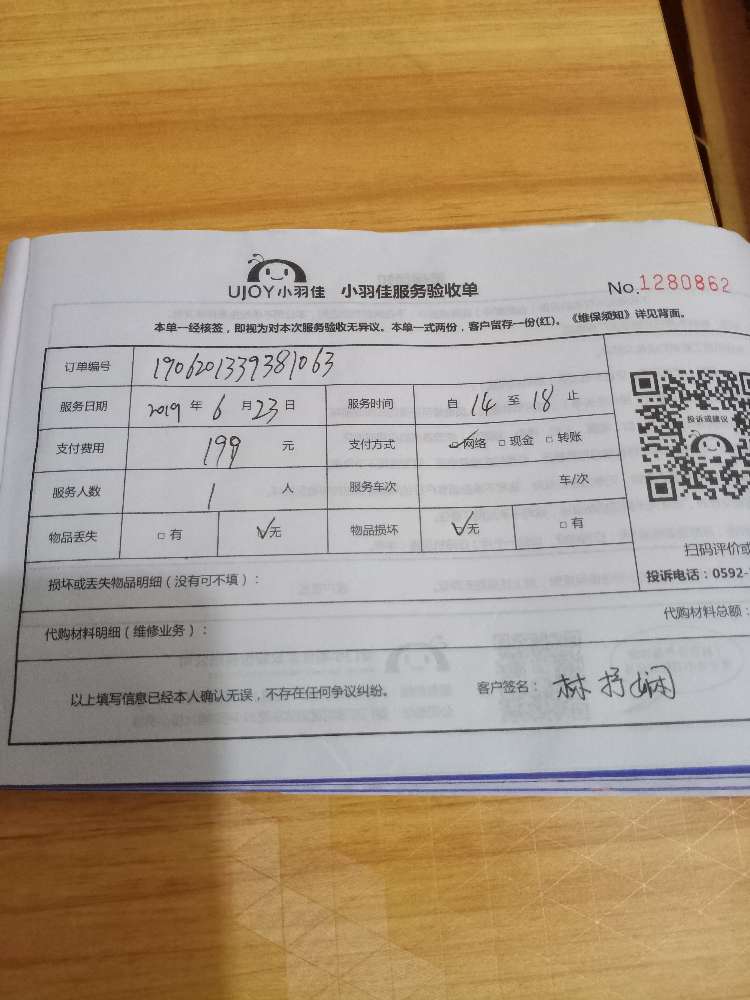 UJOY小羽佳 小羽佳服务验收单 No.1280862
本单一经核签，即视为对本次服务验收无异议。本单一式两份，客户留存一份(红)。《维保须知》详见背面。
订单编号 1906201339381063
服务日期 2019 年 6 月 23 日 服务时间 自 14 至 18 止
支付费用 199 元 支付方式 ☑网络 □现金 □转账
投诉或建议
服务人数 1 人 服务车次 车/次
物品丢失 □有 ☑无 物品损坏 ☑无 □有
扫码评价或
损坏或丢失物品明细（没有可不填）：
投诉电话：0592-
代购材料明细（维修业务）：
代购材料总额：
以上填写信息已经本人确认无误，不存在任何争议纠纷。 客户签名： 林抒娴